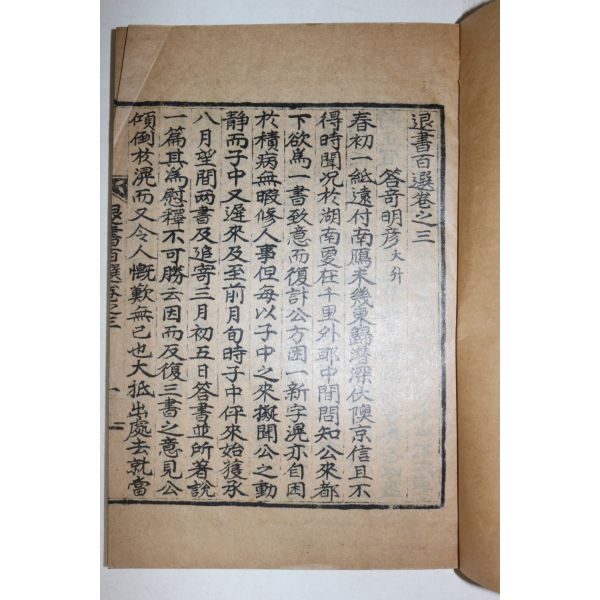 退書百選卷之三
答奇明彦大升
春初一紙遠付南鴈未幾東歸潛深伏隩京信且不
得時聞況於湖南更在千里外耶中間問知公來都
下欲爲一書致意而復計公方困一新字滉亦自困
於積病無暇修人事但每以子中之來擬聞公之動
靜而子中又遲來及至前月旬時子中伻來始獲承
八月望間兩書及追寄三月初五日答書並所著說
一篇其爲慰釋不可勝云因而反復三書之意見公
傾倒於滉而又令人慨歎無已也大抵出處去就當
退書百選卷之三